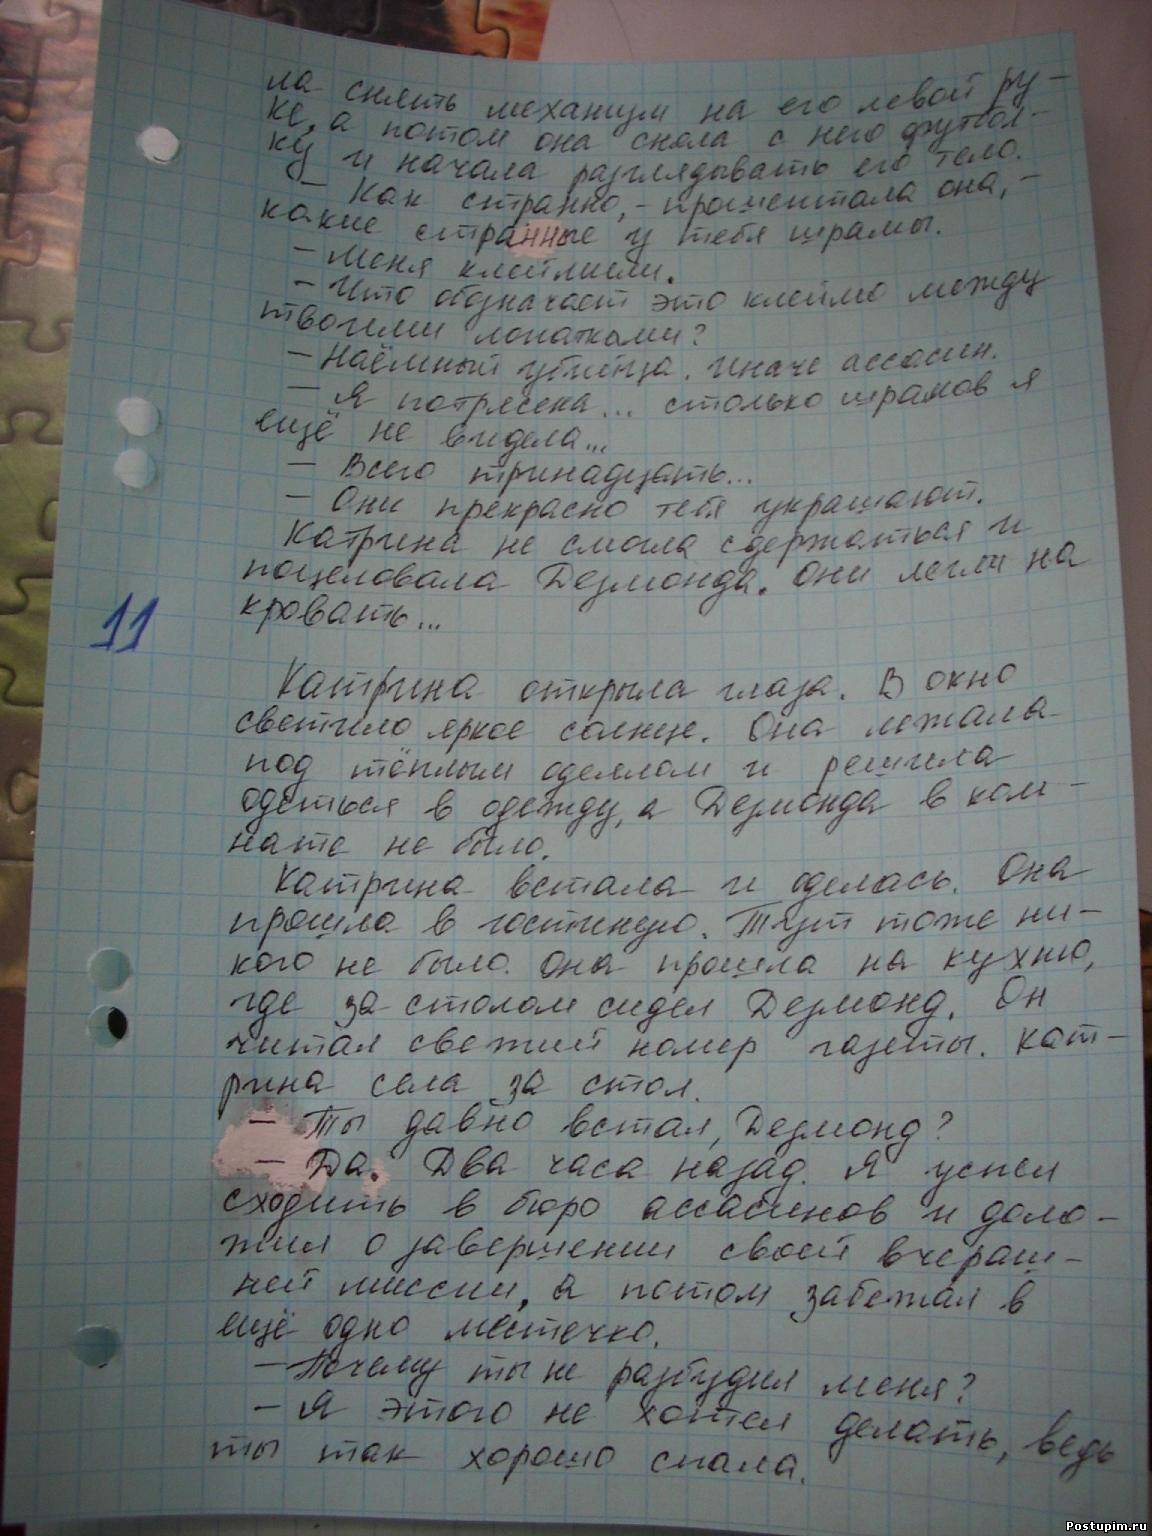 ла снять механизм на его левой ру-
ке, а потом она сняла с него футбол-
ку и начала разглядывать его тело.
- Как странно, - прошептала она, -
какие странные у тебя шрамы.
- Меня клеймили.
- Что обозначает это клеймо между
твоими лопатками?
- Наёмный убийца. Иначе ассасин.
- Я потрясена... столько шрамов я
ещё не видела...
- Всего тринадцать...
- Они прекрасно тебя украшают.
Катрина не смогла сдержаться и
поцеловала Дезмонда. Они легли на
кровать...
11
Катрина открыла глаза. В окно
светило яркое солнце. Она лежала
под тёплым одеялом и решила
одеться в одежду, а Дезмонда в ком-
нате не было.
Катрина встала и оделась. Она
прошла в гостиную. Тут тоже ни-
кого не было. Она прошла на кухню,
где за столом сидел Дезмонд. Он
читал свежий номер газеты. Кат-
рина села за стол.
- Ты давно встал, Дезмонд?
- Да. Два часа назад. Я успел
сходить в бюро ассасинов и доло-
жил о завершении своей вчераш-
ней миссии, а потом забежал в
ещё одно местечко.
- Почему ты не разбудил меня?
- Я этого не хотел делать, ведь
ты так хорошо спала.
Postupim.ru